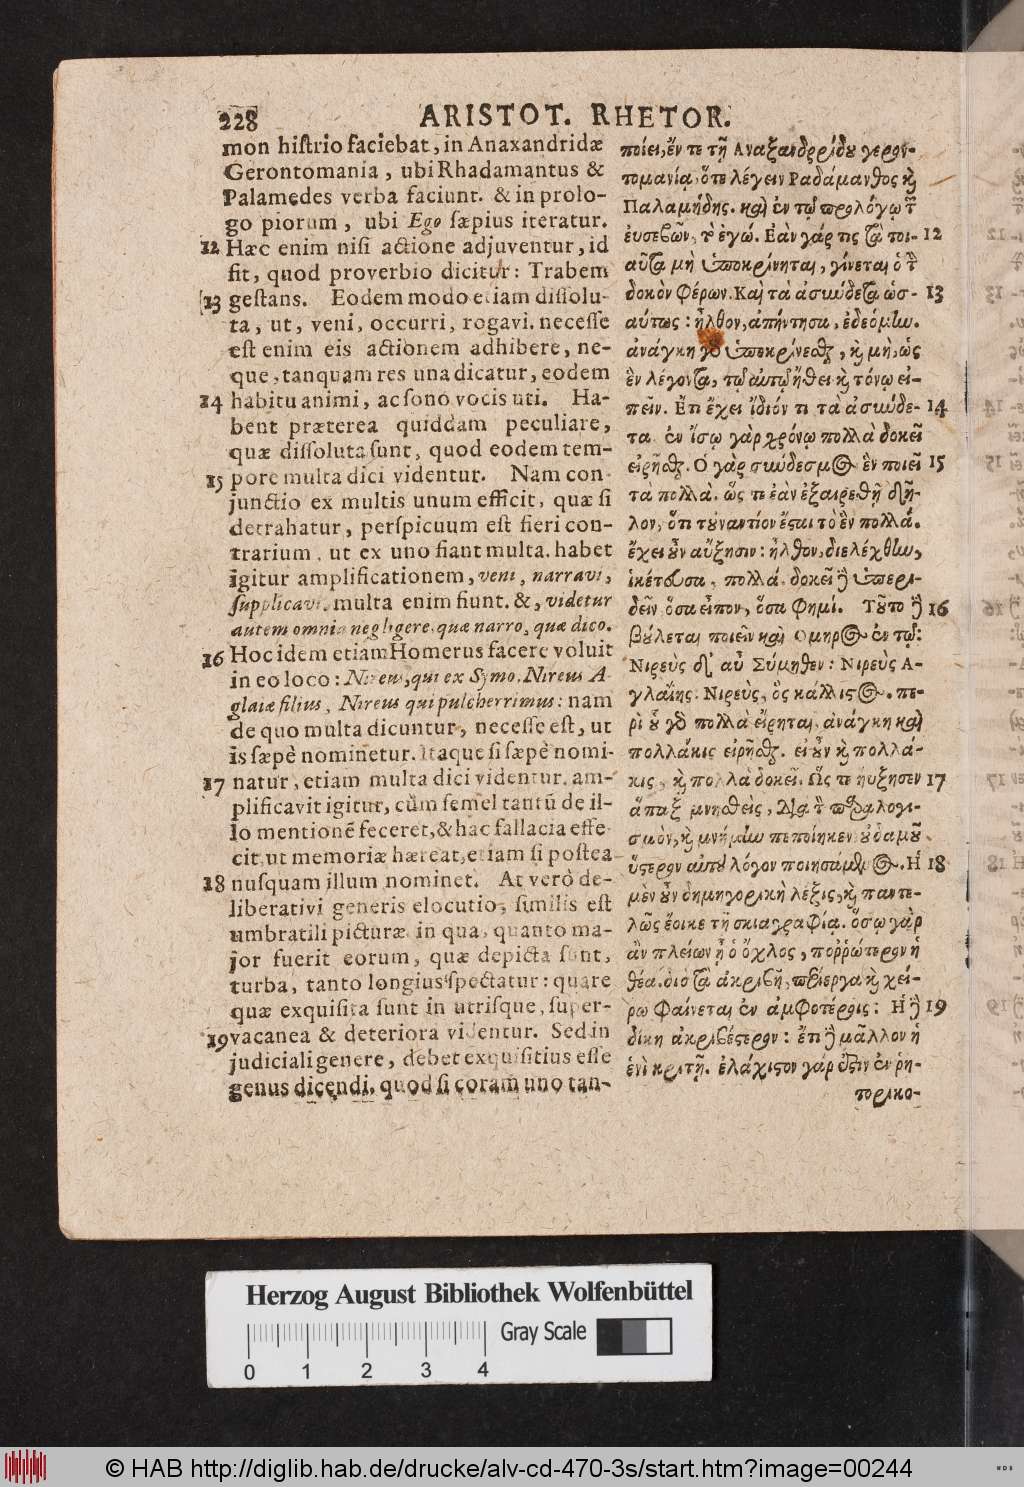 228
ARISTOT. RHETOR.
mon histrio faciebat, in Anaxandridæ
Gerontomania, ubi Rhadamantus &
Palamedes verba faciunt. & in prolo-
go piorum, ubi Ego sæpius iteratur.
12 Hæc enim nisi actione adjuventur, id
fit, quod proverbio dicitur: Trabem
13 gestans. Eodem modo etiam dissolu-
ta, ut, veni, occurri, rogavi. necesse
est enim eis actionem adhibere, ne-
que, tanquam res una dicatur, eodem
14 habitu animi, ac sono vocis uti. Ha-
bent præterea quiddam peculiare,
quæ dissoluta sunt, quod eodem tem-
15 pore multa dici videntur. Nam con-
junctio ex multis unum efficit, quæ si
detrahatur, perspicuum est fieri con-
trarium, ut ex uno fiant multa. habet
igitur amplificationem, veni, narravi,
supplicavi. multa enim fiunt. &, videtur
autem omnia negligere, quæ narro, quæ dico.
16 Hoc idem etiam Homerus facere voluit
in eo loco: Nireus, qui ex Symo. Nireus A-
glaiæ filius, Nireus qui pulcherrimus: nam
de quo multa dicuntur, necesse est, ut
is sæpè nominetur. Itaque si sæpè nomi-
17 natur, etiam multa dici videntur. am-
plificavit igitur, cùm semel tantũ de il-
lo mentionẽ feceret, & hac fallacia effe-
cit, ut memoriæ hæreat, etiam si postea
18 nusquam illum nominet. At verò de-
liberativi generis elocutio, similis est
umbratili picturæ in qua, quanto ma-
jor fuerit eorum, quæ depicta sunt,
turba, tanto longius spectatur: quare
quæ exquisita sunt in utrisque, super-
19 vacanea & deteriora videntur. Sed in
judiciali genere, debet exquisitius esse
genus dicendi. quod si coram uno tan-
ποιεῖ, ἔν τε τῇ Ἀναξανδρίδου γερον-
τομανίᾳ, ὅτε λέγειν Ραδάμανθος κ̀
Παλαμήδης. καὶ ἐν τῷ προλόγῳ τ͂
ἐυσεβῶν, τὸ ἐγώ. Ἐὰν γάρ τις τὰ τοι- 12
αῦτα μὴ ὑποκρίνηται, γίνεται ὁ τ̀
δοκὸν Φέρων. Καὶ τὰ ἀσύνδετα ὡσ- 13
αύτως: ἦλθον, ἀπήντησα, ἐδεόμην.
ἀνάγκη γὸ ὑποκρίνεσθαι, κ̀ μὴ, ὡς
ἓν λέγοντα, τῷ αὐτῷ ἤθει κ̀ τόνῳ εἰ-
πεῖν. Ἔτι ἔχει ἴδιόν τι τὰ ἀσύνδε- 14
τα. ἐν ἴσῳ γὰρ χρόνῳ πολλὰ δοκεῖ
εἰρῆσθαι. Ὁ γὰρ σύνδεσμος ἓν ποιεῖ 15
τα πολλὰ. ὥς τε ἐὰν ἐξαιρεθῇ δῆ-
λον, ὅτι τοὐναντίον ἔσται τὸ ἓν πολλά.
ἔχει οὖν αὔξησιν: ἦλθον, διελέχθην,
ἱκέτευσα, πολλά. δοκεῖ δὲ ὑπερι-
δεῖν, ὅσα εἶπον, ὅσα Φημί. Τοῦτο δὲ 16
βούλεται ποιεῖν καὶ Ὅμηρος ἐν τῷ:
Νιρεὺς δ' αὖ Σύμηθεν: Νιρεὺς Ἀ-
γλαΐης: Νιρεὺς, ὃς κάλλιστος. πε-
ρὶ οὗ γὸ πολλὰ εἴρηται, ἀνάγκη καὶ
πολλάκις εἰρῆσθαι. εἰ οὖν κ̀ πολλά-
κις, κ̀ πολλὰ δοκεῖ. Ὥς τε ηὔξησεν 17
ἅπαξ μνησθεὶς, διὰ τ̀ παραλογι-
σμὸν, κ̀ μνήμην πεποίηκεν οὐδαμοῦ
ὕστερον αὐτοῦ λόγον ποιησάμενος. Ἡ 18
μὲν οὖν δημηγορικὴ λέξις, κ̀ παντε-
λῶς ἔοικε τῇ σκιαγραφίᾳ. ὅσῳ γὰρ
ἂν πλείων ᾖ ὁ ὄχλος, ποῤῥώτερον ἡ
θέα. διὸ τὰ ἀκριβῆ, περίεργα κ̀ χεί-
ρω Φαίνεται ἐν ἀμΦοτέροις: Ἡ δὲ 19
δίκη ἀκριβέστερον: ἔτι δὲ μᾶλλον ἡ
ἑνὶ κριτῇ. ἐλάχιστον γάρ ἐστιν ἐν ῥη-
τορικο-
Herzog August Bibliothek Wolfenbüttel
Gray Scale
0 1 2 3 4
© HAB http://diglib.hab.de/drucke/alv-cd-470-3s/start.htm?image=00244